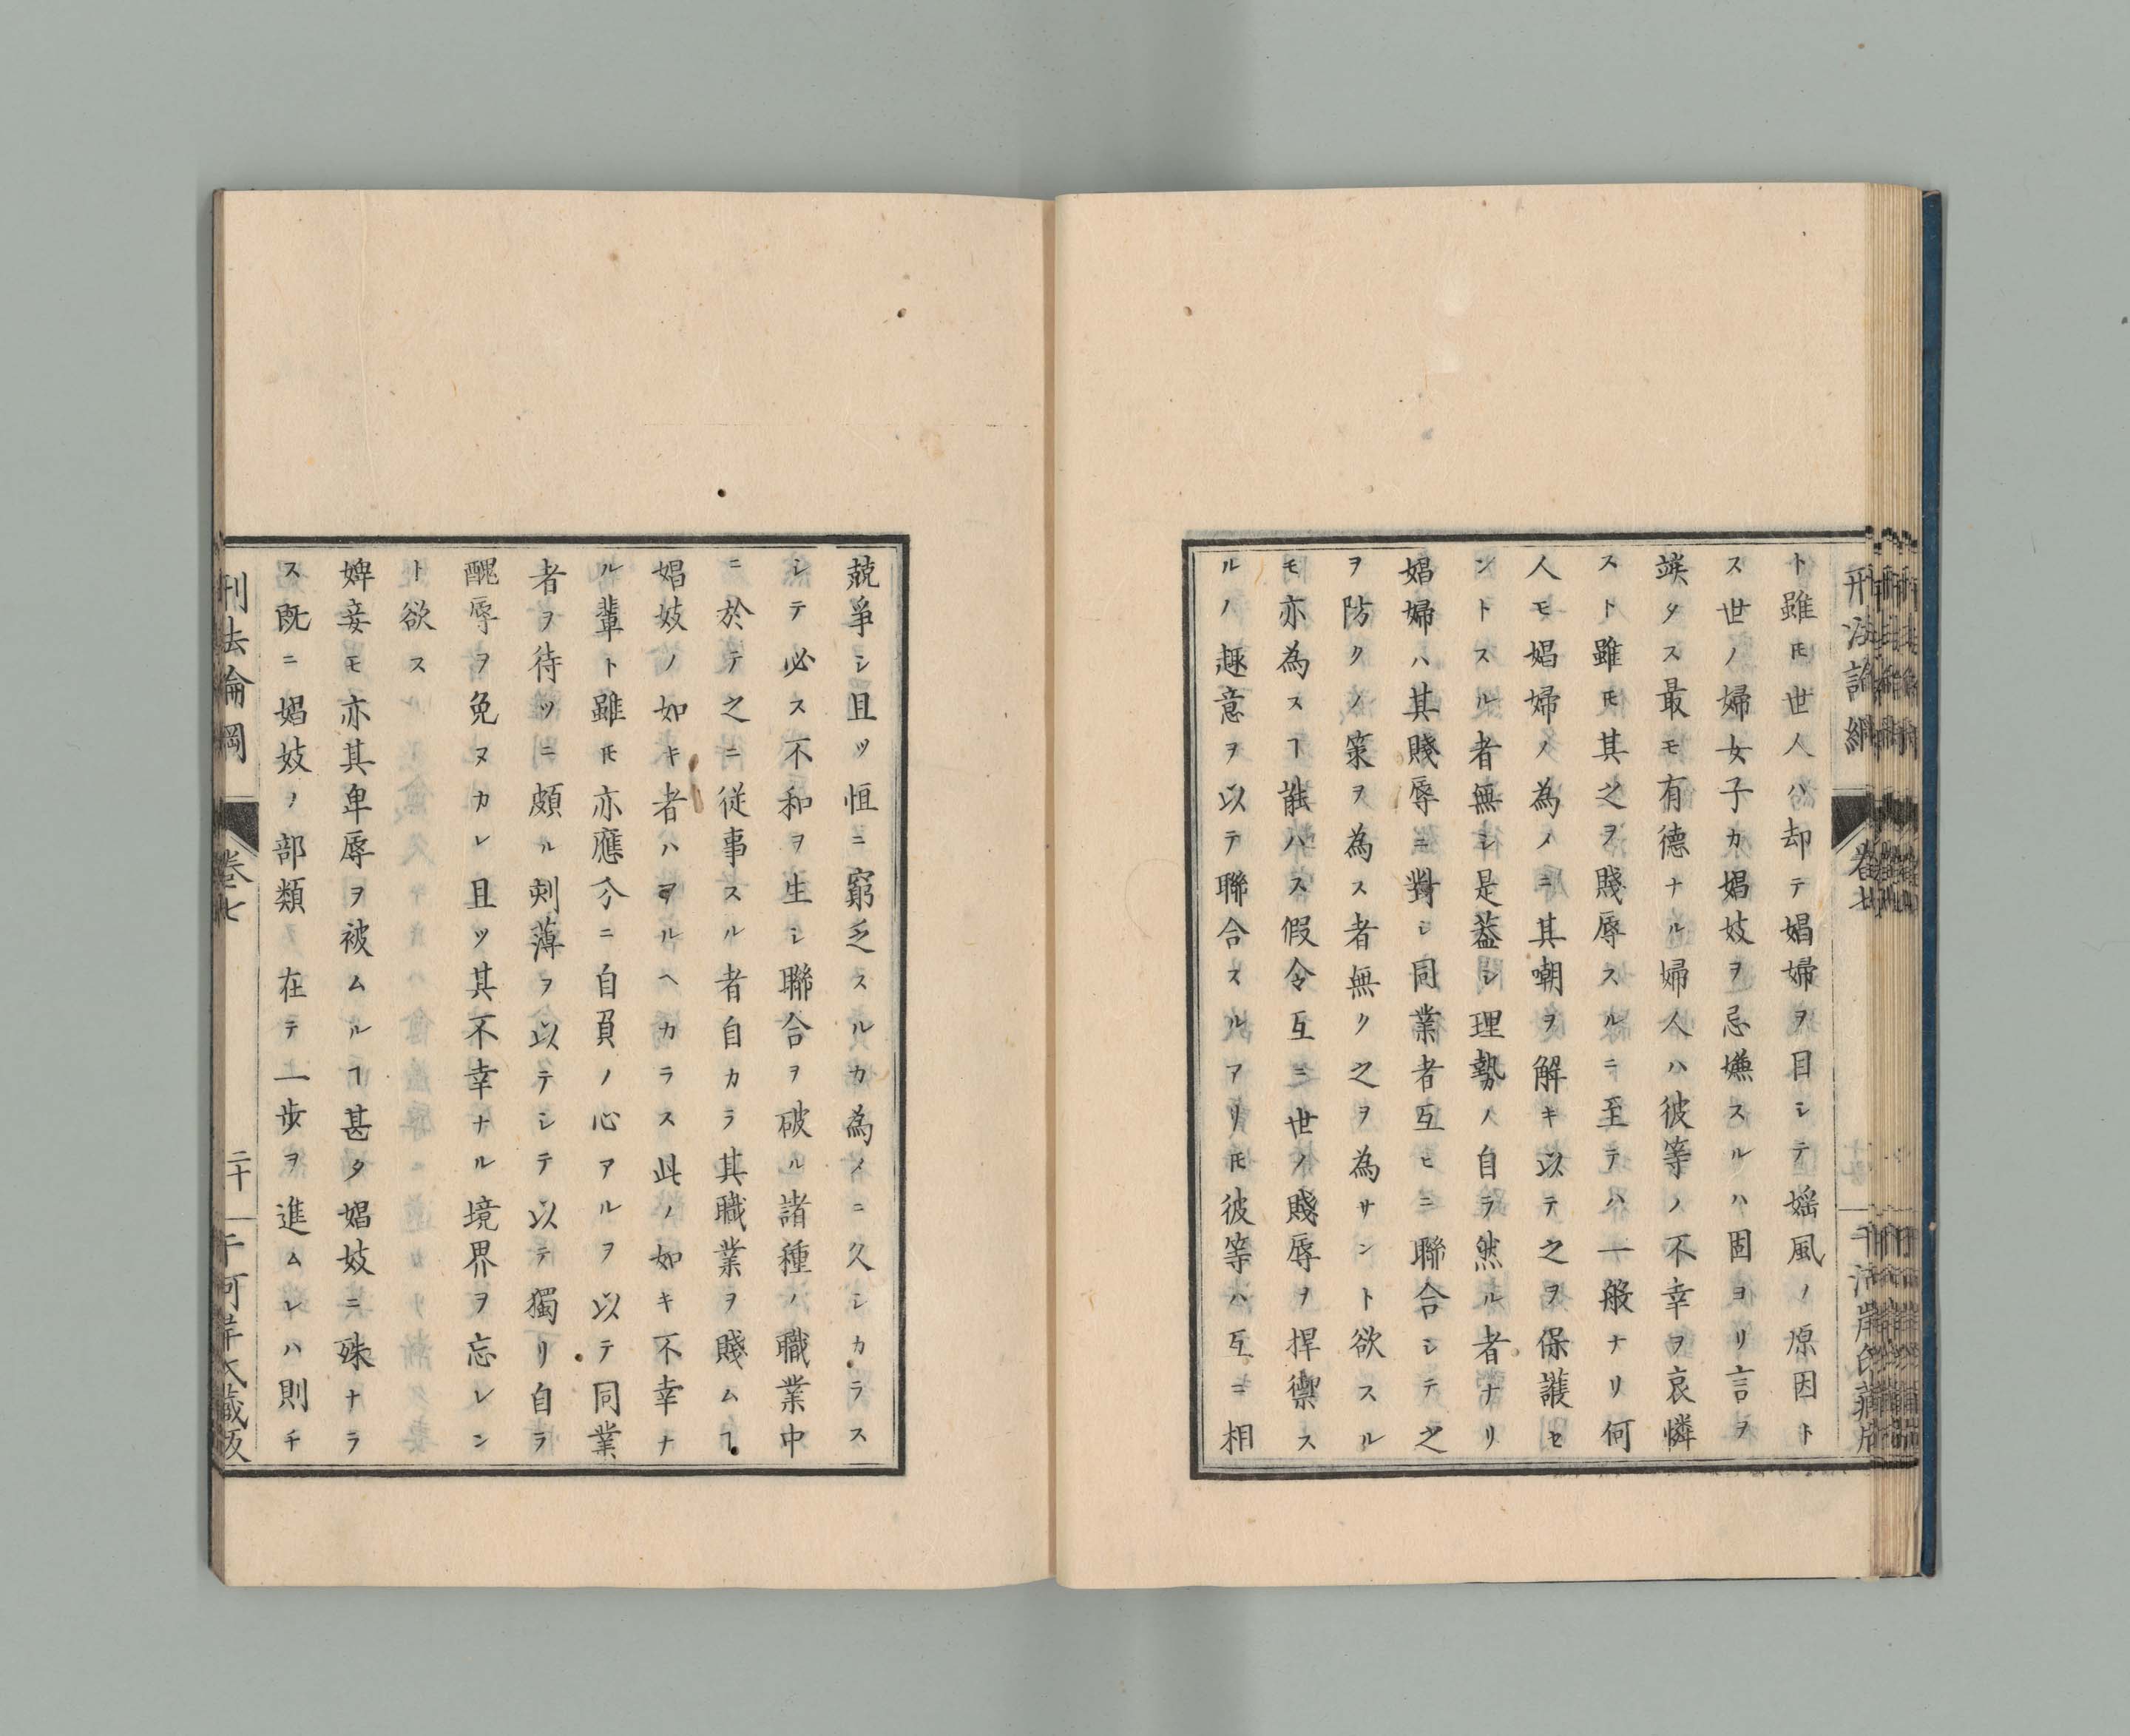 ト雖𪜈世人ハ却テ娼婦ヲ目シテ婬風ノ原因ト
ス世ノ婦女子カ娼妓ヲ忌嫌スルハ固ヨリ言ヲ
竢タス最モ有德ナル婦人ハ彼等ノ不幸ヲ哀憐
スト雖𪜈其之ヲ賤辱スルニ至テハ一般ナリ何
人モ娼婦ノ為メニ其嘲ヲ解キ以テ之ヲ保護セ
ントスル者無シ是葢シ理勢ノ自ラ然ル者ナリ
娼婦ハ其賤辱ニ對シ同業者互ヒニ聯合シテ之
ヲ防クノ策ヲ為ス者無ク之ヲ為サント欲スル
モ亦為スヿ能ハス假令互ニ世ノ賤辱ヲ捍禦ス
ルノ趣意ヲ以テ聯合スルアリ𪜈彼等ハ互ニ相
競爭シ且ツ恒ニ窮乏スルカ為メニ久シカラス
シテ必ス不和ヲ生シ聯合ヲ破ル諸種ノ職業中
ニ於テ之ニ従事スル者自カラ其職業ヲ賤ムヿ
娼妓ノ如キ者ハヲルヘカラス此ノ如キ不幸ナ
ル輩ト雖𪜈亦應分ニ自負ノ心アルヲ以テ同業
者ヲ待ツニ頗ル刻薄ヲ以テシテ以テ獨リ自ラ
醜辱ヲ免ヌカレ且ツ其不幸ナル境界ヲ忘レン
ト欲ス
婢妾モ亦其卑辱ヲ被ムルヿ甚タ娼妓ニ殊ナラ
ス既ニ娼妓ノ部類ニ在テ一歩ヲ進ムレハ則チ
刑法論綱
卷七
二十